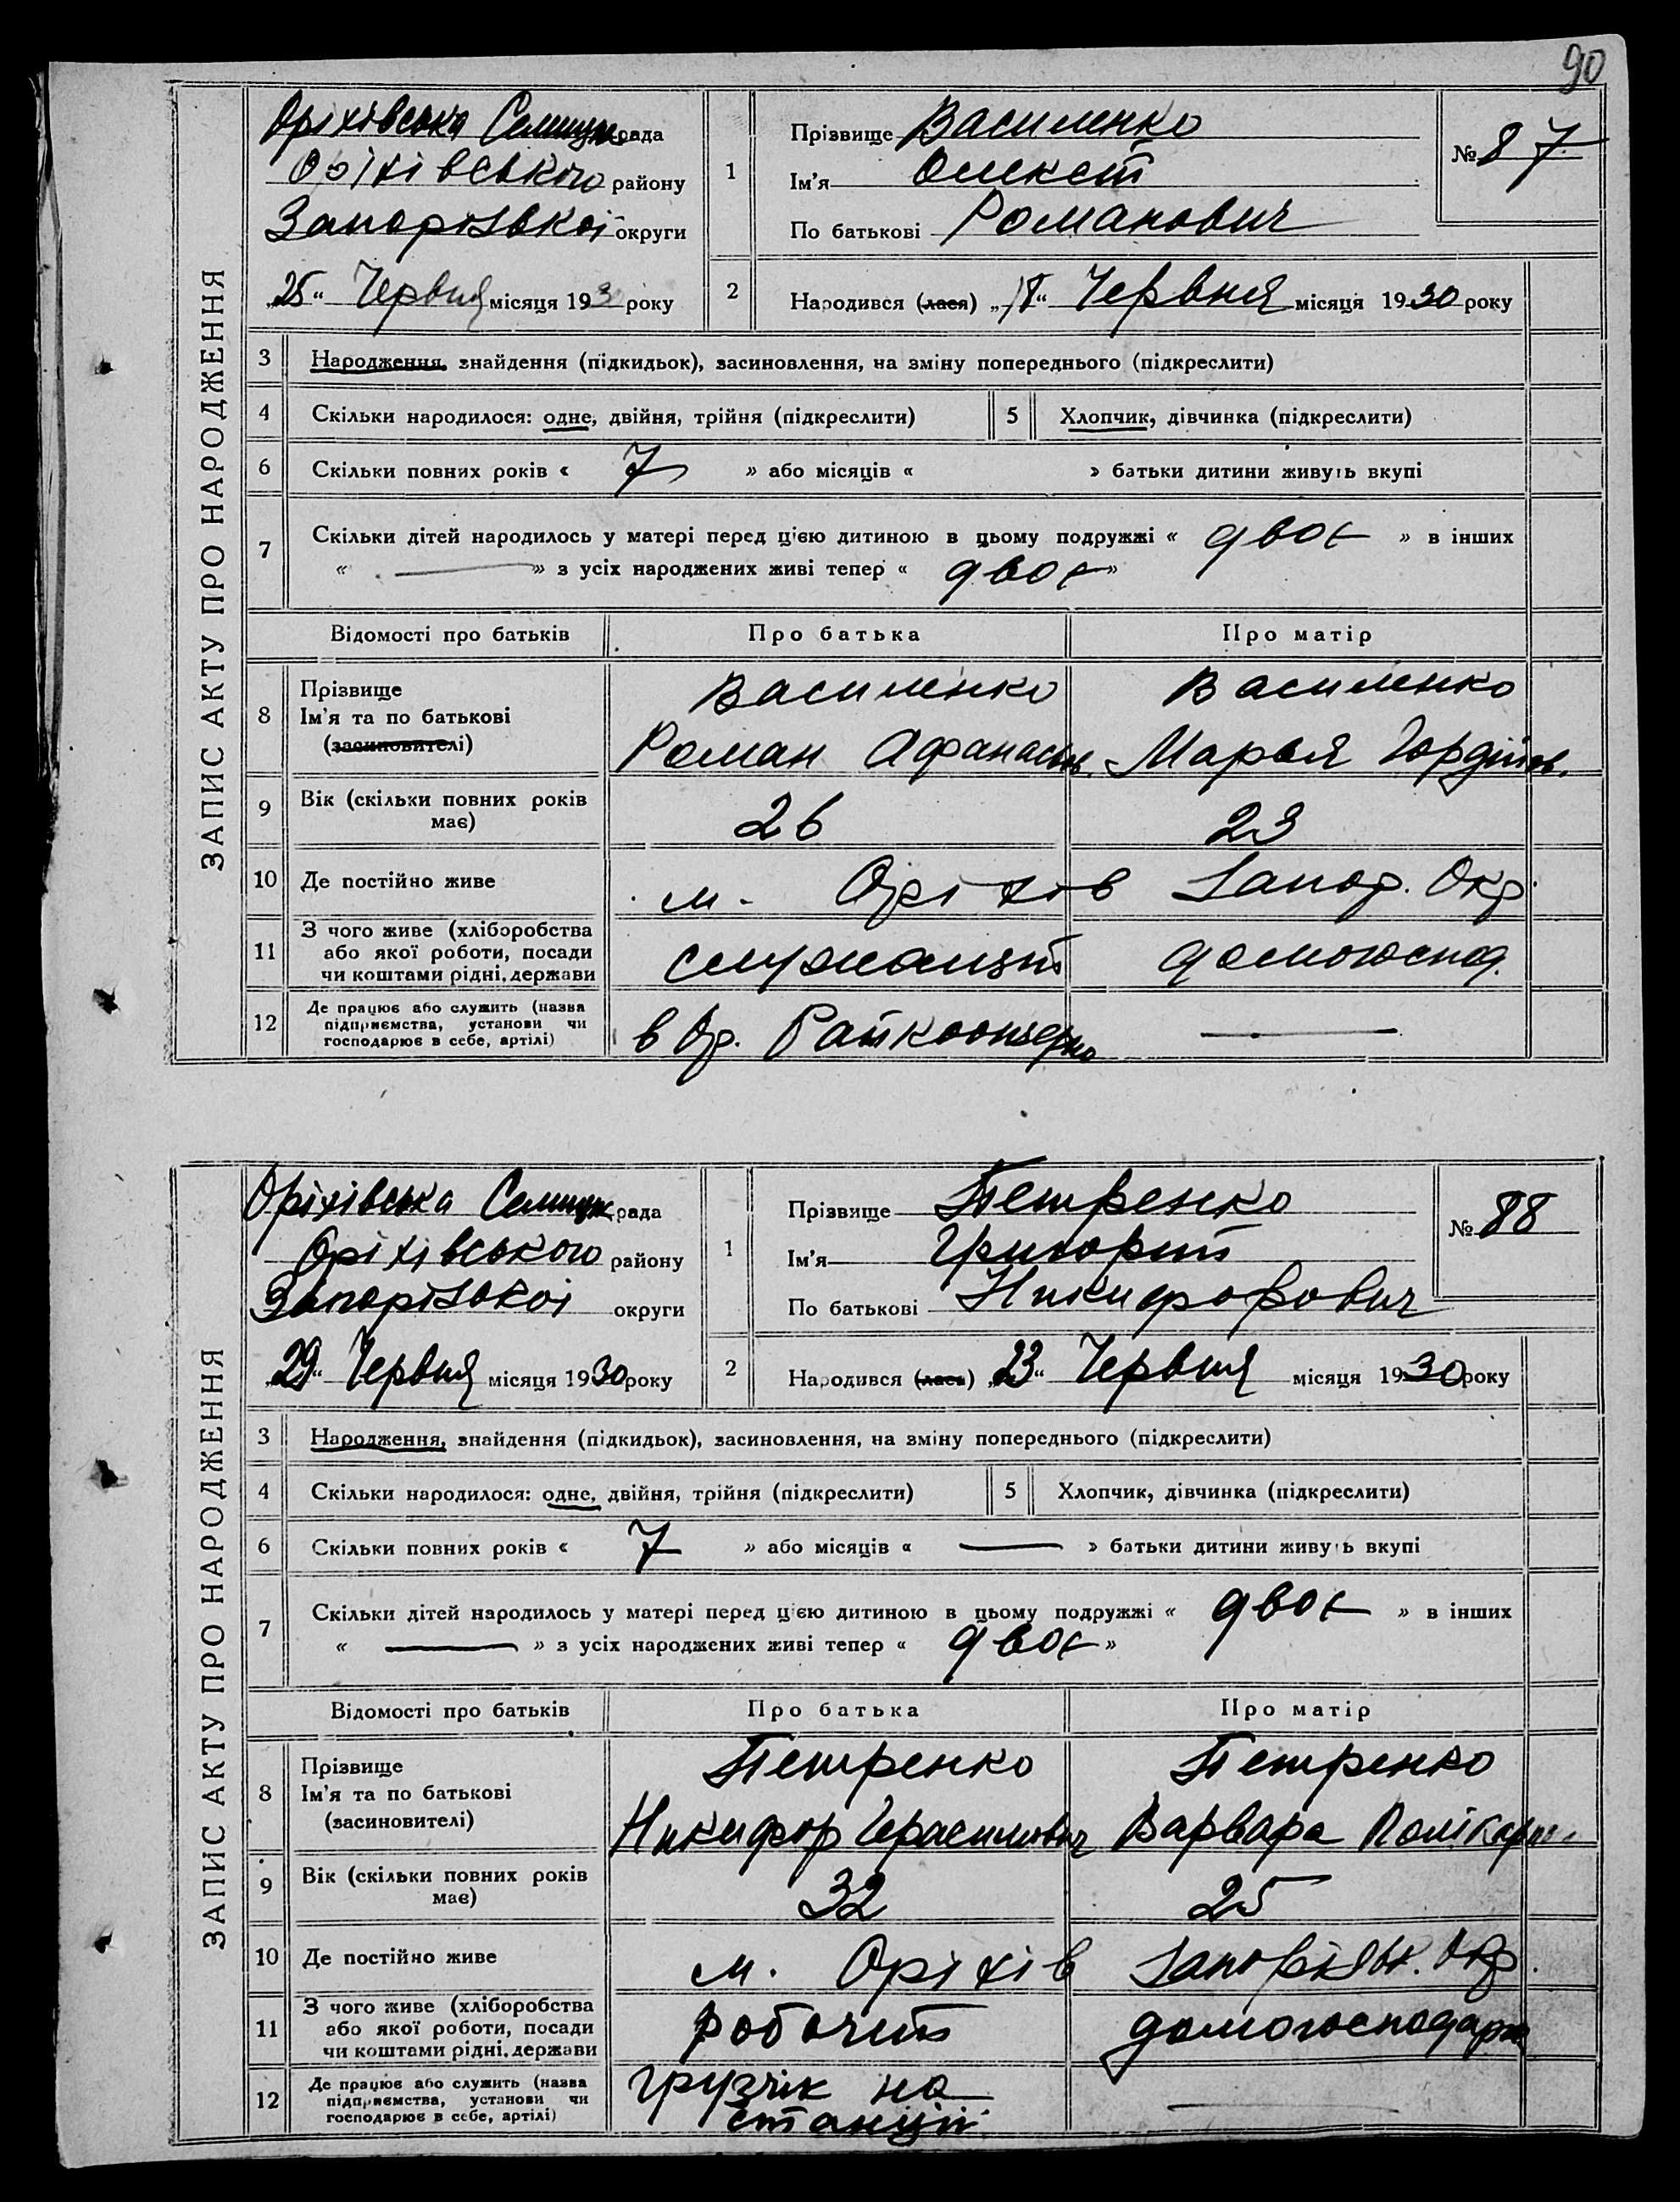 90
ЗАПИС АКТУ ПРО НАРОДЖЕННЯ
Оріхівська Селищн рада
Оріхівського району
Запорізької округи
„25“ Червня місяця 193 року
1
Прізвище Василенко
Ім'я Олексій
По батькові Романович
№ 87
2
Народився (лася) „18“ Червня місяця 1930 року
3 Народження, знайдення (підкидьок), засиновлення, на зміну попереднього (підкреслити)
4 Скільки народилося: одне, двійня, трійня (підкреслити) 5 Хлопчик, дівчинка (підкреслити)
6 Скільки повних років « 7 » або місяців « » батьки дитини живуть вкупі
7 Скільки дітей народилось у матері перед цією дитиною в цьому подружжі « двоє » в інших
« — » з усіх народжених живі тепер « двоє »
Відомості про батьків Про батька Про матір
8 Прізвище Василенко Василенко
Ім'я та по батькові
(засиновителі) Роман Афанасьев. Марья Гордійов.
9 Вік (скільки повних років
має) 26 23
10 Де постійно живе м. Оріхів Запор. Окр.
11 З чого живе (хліборобства
або якої роботи, посади
чи коштами рідні, держави служащий домогоспод.
12 Де працює або служить (назва
підприємства, установи чи
господарює в себе, артілі) в Ор. —
ЗАПИС АКТУ ПРО НАРОДЖЕННЯ
Оріхівська Селищн рада
Оріхівського району
Запорізької округи
„29“ Червня місяця 1930 року
1
Прізвище Петренко
Ім'я Григорий
По батькові Никифорович
№ 88
2
Народився (лася) „23“ Червня місяця 1930 року
3 Народження, знайдення (підкидьок), засиновлення, на зміну попереднього (підкреслити)
4 Скільки народилося: одне, двійня, трійня (підкреслити) 5 Хлопчик, дівчинка (підкреслити)
6 Скільки повних років « 7 » або місяців « — » батьки дитини живуть вкупі
7 Скільки дітей народилось у матері перед цією дитиною в цьому подружжі « двоє » в інших
« — » з усіх народжених живі тепер « двоє »
Відомості про батьків Про батька Про матір
8 Прізвище Петренко Петренко
Ім'я та по батькові
(засиновителі) Никифор Герасимович Варвара Полікарпо.
9 Вік (скільки повних років
має) 32 25
10 Де постійно живе м. Оріхів Запорізьк. Окр.
11 З чого живе (хліборобства
або якої роботи, посади
чи коштами рідні, держави робочий домогосподарка
12 Де працює або служить (назва
підприємства, установи чи
господарює в себе, артілі) грузчік на
станції —